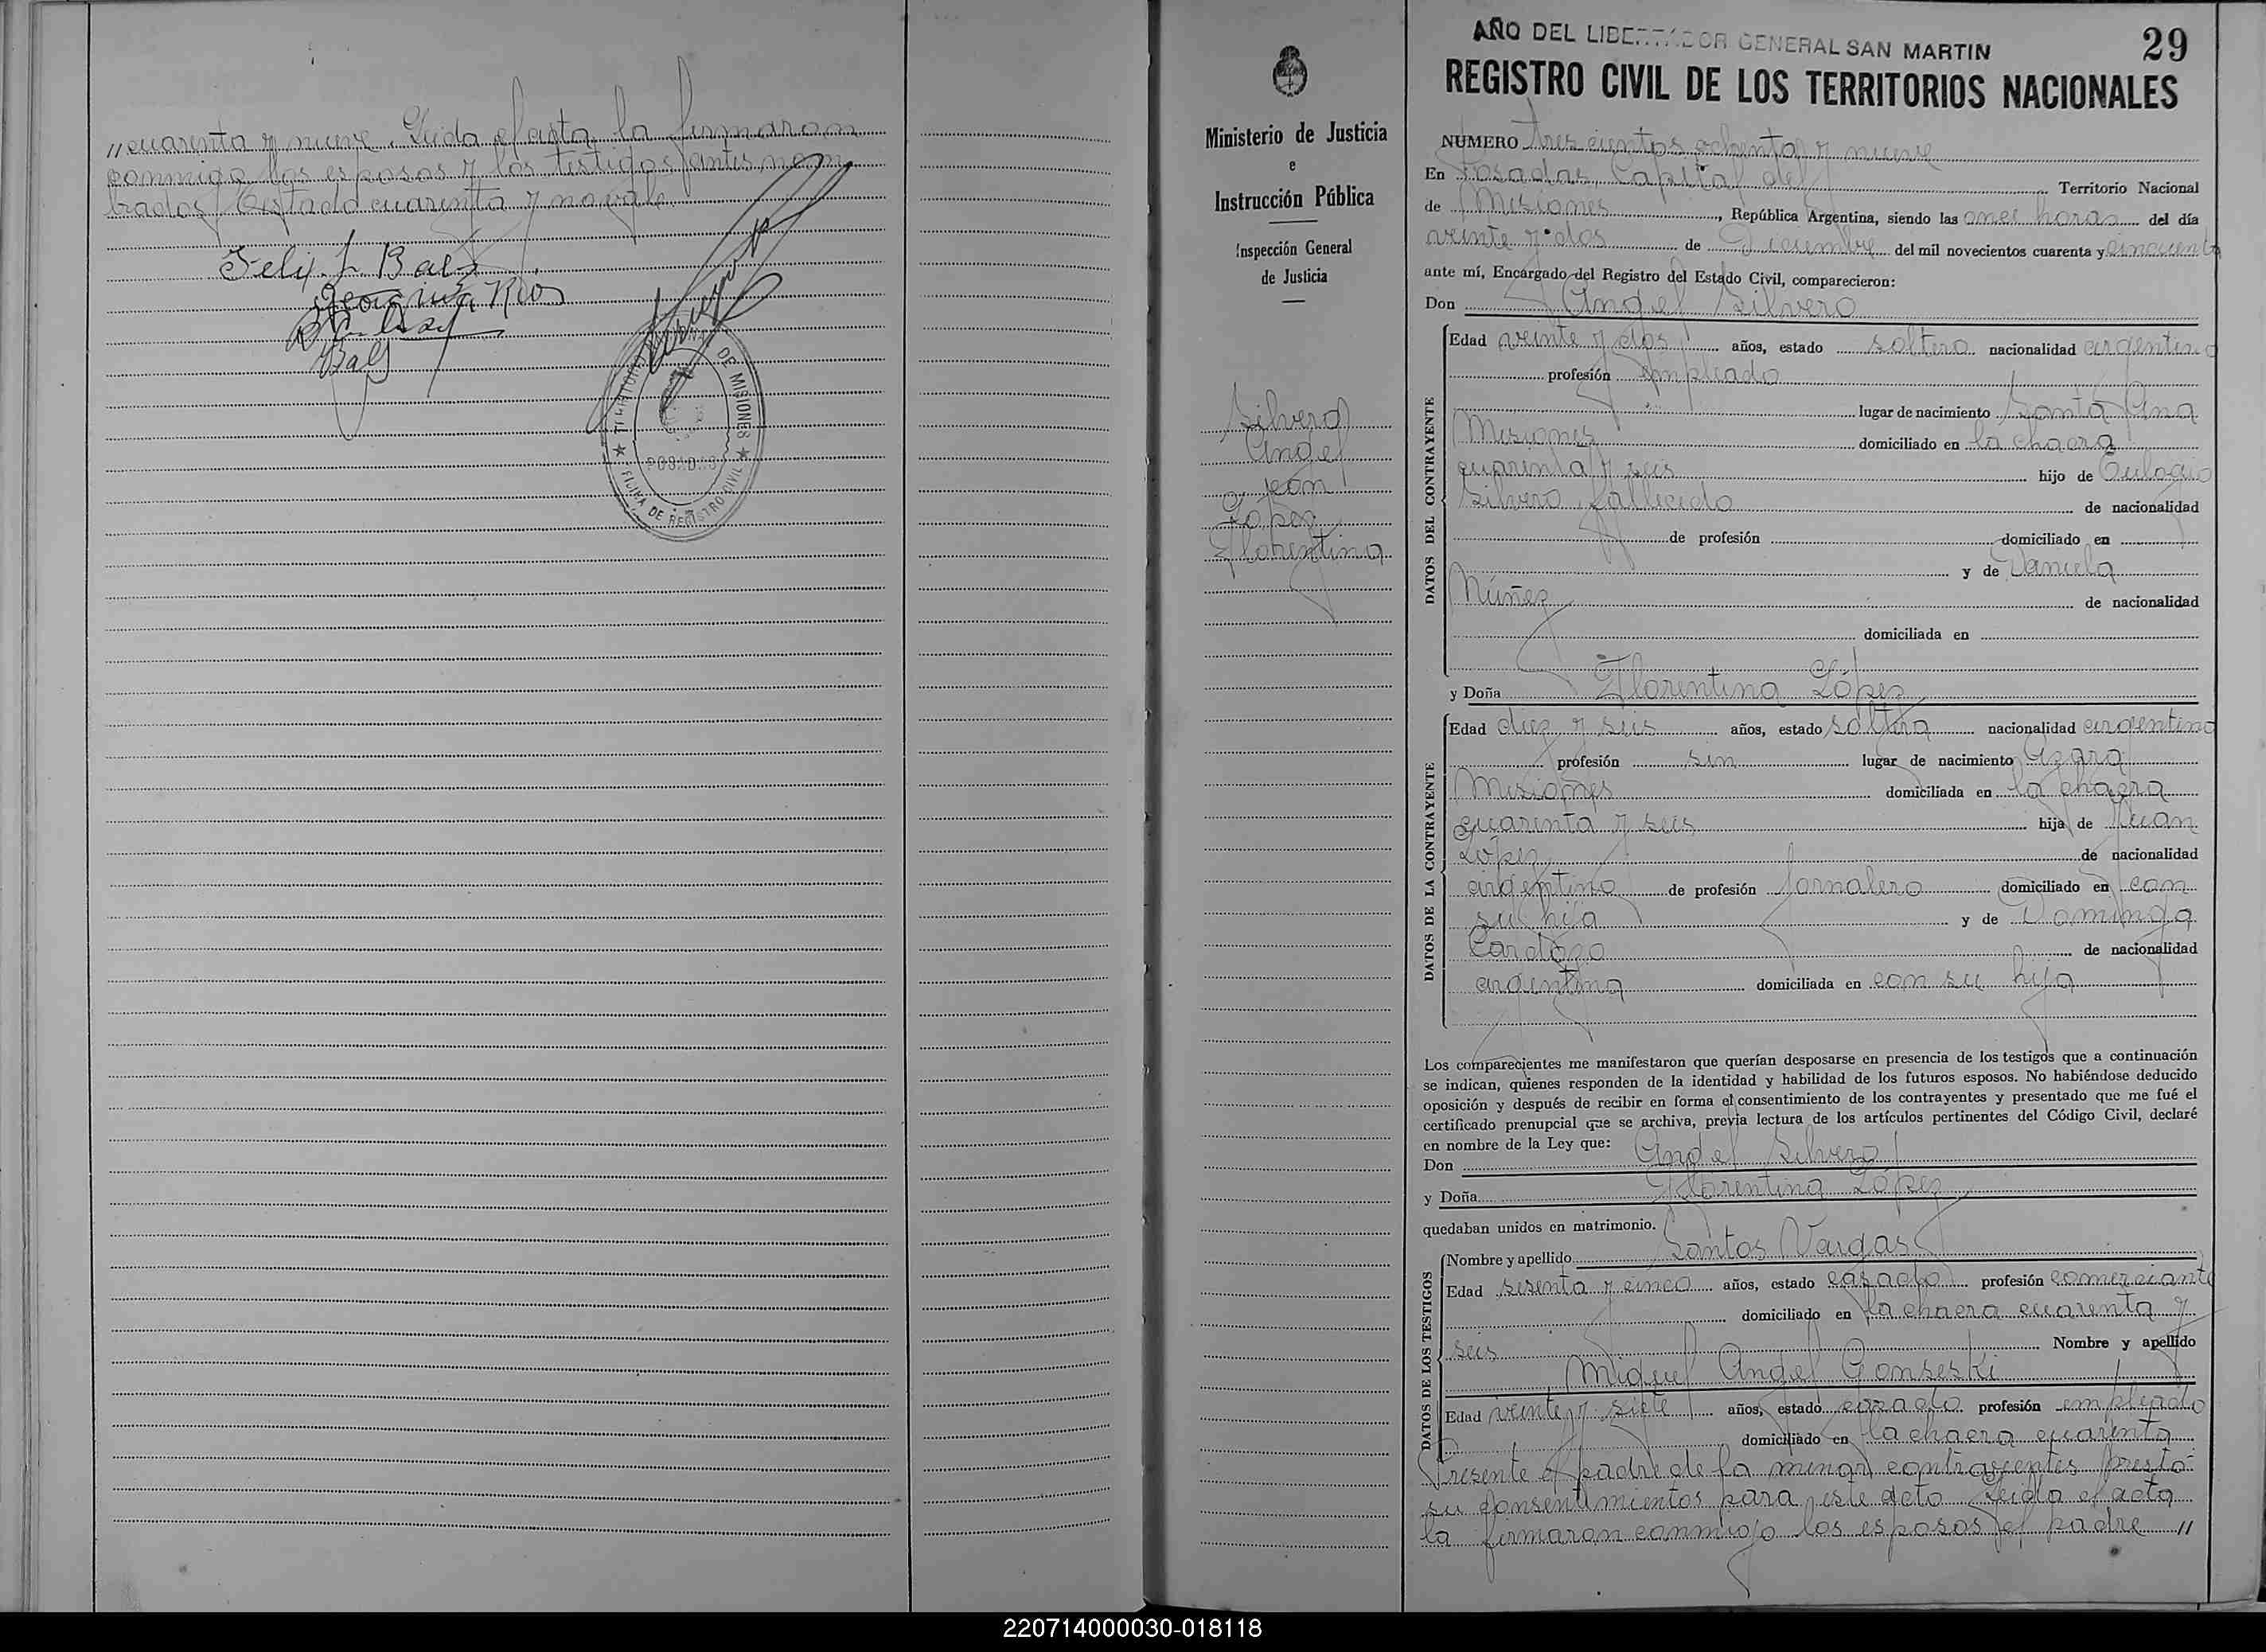 "cuarenta y nueve. Leida el acta la firmaron
conmigo los esposos y los testigos antes nom
brados. Testado cuarenta y no vale.
Felix J. Baez
Georgina Rios
Baez
TERRITORIO NACIONAL DE MISIONES
POSADAS
OFICINA DE REGISTRO CIVIL
Ministerio de Justicia
e
Instrucción Pública
Inspección General
de Justicia
Silvero
Angel
con
Lopez
Florentina
AÑO DEL LIBERTADOR GENERAL SAN MARTIN
29
REGISTRO CIVIL DE LOS TERRITORIOS NACIONALES
NUMERO Trescientos ochenta y nueve
En Posadas, Capital del Territorio Nacional
de Misiones, República Argentina, siendo las once horas del día
veinte y dos de Diciembre del mil novecientos cuarenta y cincuenta
ante mí, Encargado del Registro del Estado Civil, comparecieron:
Don Angel Silvero
DATOS DEL CONTRAYENTE
Edad veinte y dos años, estado soltero nacionalidad argentino
profesión empleado
lugar de nacimiento Santa Ana
Misiones domiciliado en la chacra
cuarenta y seis hijo de Eulogio
Silvero, fallecido de nacionalidad
de profesión domiciliado en
y de Daniela
Núñez de nacionalidad
domiciliada en
y Doña Florentina López
DATOS DE LA CONTRAYENTE
Edad diez y seis años, estado soltera nacionalidad argentina
profesión sin lugar de nacimiento Azara
Misiones domiciliada en la chacra
cuarenta y seis hija de Juan
López de nacionalidad
argentino de profesión Jornalero domiciliado en con
su hija y de Dominga
Cardozo de nacionalidad
argentina domiciliada en con su hija
Los comparecientes me manifestaron que querían desposarse en presencia de los testigos que a continuación
se indican, quienes responden de la identidad y habilidad de los futuros esposos. No habiéndose deducido
oposición y después de recibir en forma el consentimiento de los contrayentes y presentado que me fué el
certificado prenupcial que se archiva, previa lectura de los artículos pertinentes del Código Civil, declaré
en nombre de la Ley que:
Don Angel Silvero
y Doña Florentina López
quedaban unidos en matrimonio.
DATOS DE LOS TESTIGOS
Nombre y apellido Santos Vargas
Edad sesenta y cinco años, estado casado profesión comerciante
domiciliado en la chacra cuarenta y
seis Nombre y apellido
Miguel Angel Gonseski
Edad veinte y siete años, estado casado profesión empleado
domiciliado en la chacra cuarenta
Presente el padre de la menor contrayentes presto
su consentimientos para este acto Leida el acta
la firmaron conmigo los esposos, el padre "
220714000030-018118